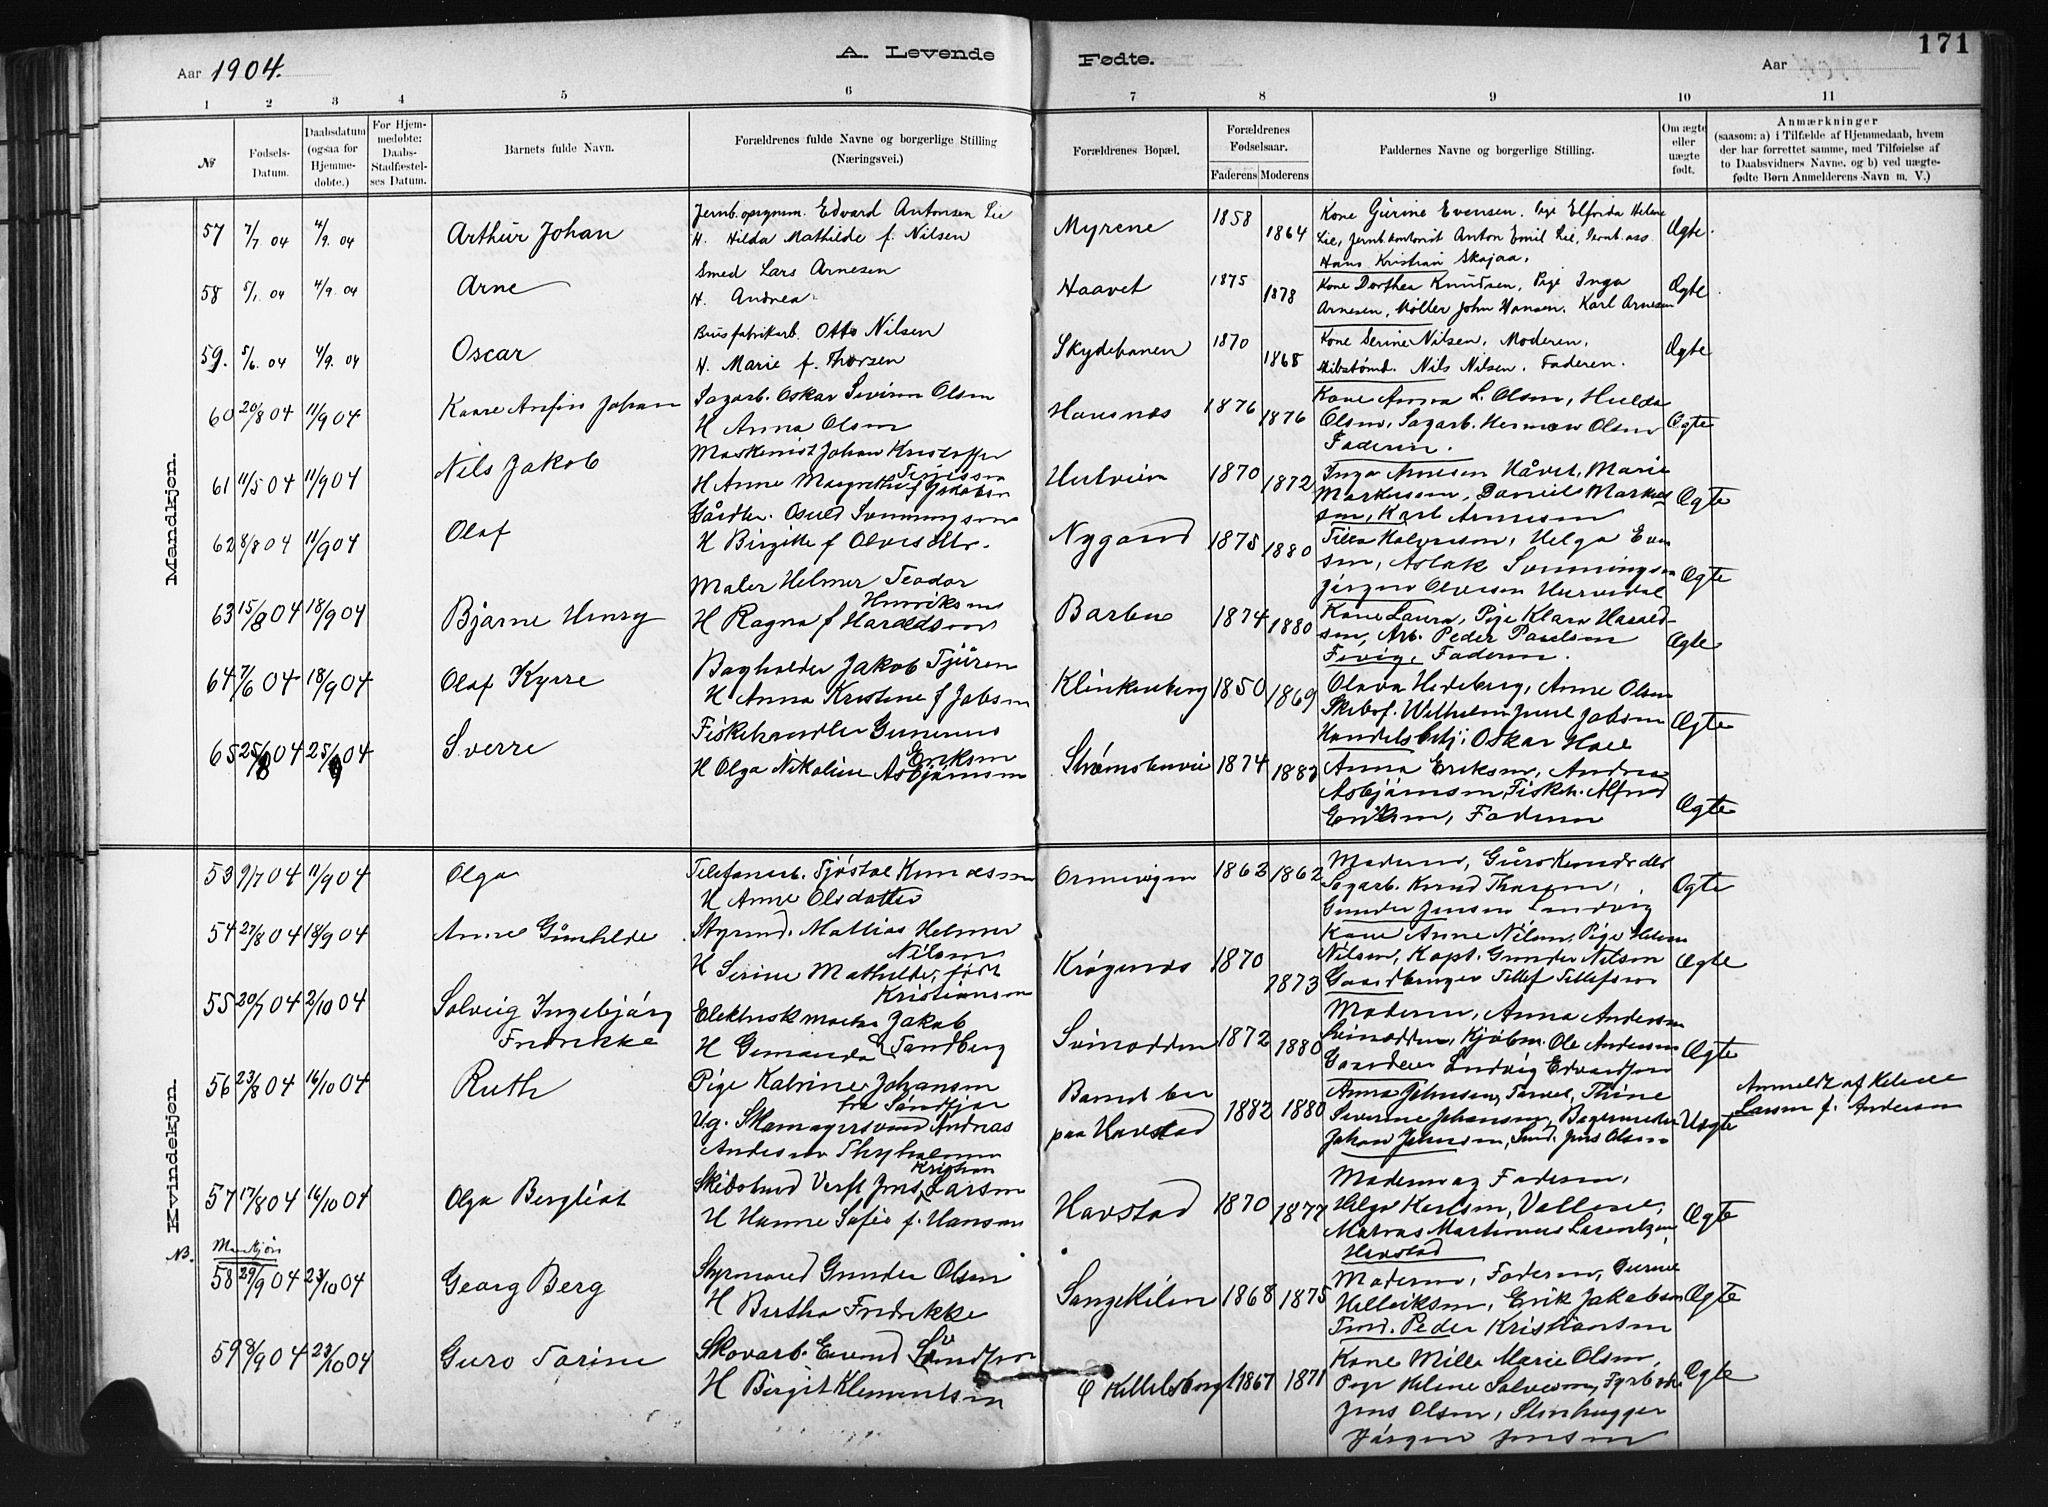 171
Aar 1904.
A. Levende Fødte.
Aar
1 2 3 4 5 6 7 8 9 10 11
№
Fødsels-Datum.
Daabsdatum (ogsaa for Hjemme-døbte.)
For Hjem-medøbte: Daabs-Stadfæstel-ses Datum.
Barnets fulde Navn.
Forældrenes fulde Navne og borgerlige Stilling (Næringsvei.)
Forældrenes Bopæl.
Forældrenes Fødselsaar.
Faderens Moderens
Faddernes Navne og borgerlige Stilling.
Om ægte eller uægte født.
Anmærkninger
(saasom: a) i Tilfælde af Hjemmedaab, hvem
der har forrettet samme, med Tilføielse af
to Daabsvidners Navne, og b) ved uægte-
fødte Børn Anmelderens Navn m. V.)
Mandkjøn.
57 7/7 04 4/9 04 Arthur Johan
Edvard Antonsen Lie
H. Hilda Mathilde f. Nilsen
Myrene 1858 1864
Kone Gurine Evensen. Pige Elfrida Helene
Lie, Jernb.kontorist Anton Emil Lie, Jernb.ass.
Hans Kristian Skajaa.
Ægte.
58 5/1 04 4/9 04 Arne
Smed Lars Arnesen
H. Andrea
Haavet 1875 1878
Kone Dorthea Knudsen, Pige Inga
Arnesen, Møller John Hansen. Karl Arnesen
Ægte
59. 5/6 04 4/9 04 Oscar
Otto Nilsen
H. Marie f. Thorsen
Skydebanen 1870 1868
Kone Serine Nilsen, Moderen,
Nils Nilsen. Faderen.
Ægte
60 20/8 04 11/9 04 Kaare Anfin Johan
Sagarb. Oskar Olsen
H Anna Olsen
Havsnæs 1876 1876
Kone Anna L. Olsen, Hulda
Olsen, Sagarb. Herman Olsen
Faderen.
Ægte
61 11/5 04 11/9 04 Nils Jakob
Maskinist Johan Kristoffer
Terjesen
H Anne Margrethe f Jakobsen
1870 1872
Inga Arnesen Håvet, Marie
Markussen, Daniel Markus
sen, Karl Arnesen
Ægte
62 8/8 04 11/9 04 Olaf
Gårdbr. Osuld Sønningsen
H Birgitte f Olvesdtr.
Nygaard 1875 1880
Tilla Halvorsen, Helga Even
sen, Aslak Sønningsen
Jørgen Olvesen
Ægte
63 15/8 04 18/9 04 Bjarne Henry
Maler Helmer Teodor
Henriksen
H Ragna f Haraldsen
Barbu 1874 1880
Kone Laura, Pige Klara Harald-
sen, Arb. Peder Paulsen
Fevige Faderen.
Ægte
64 7/6 04 18/9 04 Olaf Kyrre
Bogholder Jakob Tjüren
H Anna Kristine f Jobsen
Klinkenberg 1850 1869
Olava Hedeberg, Anne Olsen
Skibsf. Wilhelm Juul Jobsen
Handelsbetj. Oskar Hall
Ægte
65 25/8 04 25/9 04 Sverre
Fiskehandler Gunerius
Eriksen
H Olga Nikoline Asbjørnsen
Strømsbuvei 1874 1882
Anna Eriksen, Andrea
Asbjørnsen, Fiskeh. Alfred
Eriksen, Faderen
Ægte
Kvindekjøn.
53 9/7 04 11/9 04 Olga
Telefonarb. Tjøstol Knudsen
H Anne Olsdatter
1863 1862
Moderen, Guro Knudsdtr
Sagarb. Knud Thorsen,
Gunder Jensen Landvig
Ægte
54 27/8 04 18/9 04 Anne Gunhilde
Styrmd. Mathias Helmer
Nilsen
H Serine Mathilde, født
Kristiansen
Krøgenæs 1870 1873
Kone Anne Nilsen, Pige Helene
Nilsen, Kapt. Gunder Nilsen
Gaardbruger Tellef Tellefsen
Ægte
55 20/7 04 2/10 04 Solveig Ingebjørg
Fredrikke
Jakob
Sandberg
H
Svinodden 1872 1880
Moderen, Anna Andersen
Svinodden, Kjøbm. Ole Andersen
Gaardeier Ludvig Edvardsen
Ægte
56 23/8 04 16/10 04 Ruth
Pige Katrine Johansen
fra
Ug. Andreas
Andersen
Barnet bor
paa Havstad
1882 1880
Anna Johnsen, Thine
Severine Johansen, Bagermester
Johan Johnsen, Smd. Jens Olsen
Uægte
Anmeldt af Helene
Larsen f. Andersen
57 17/8 04 16/10 04 Olga Bergliot
Kristian
Verft Jens Larsen
H Hanne Sofie f. Hansen
Havstad 1870 1877
Moderen og Faderen,
Helga Karlsen, Vollene,
Martinius Larentzen
Havstad
Ægte
NB. Mandkjøn
58 29/9 04 23/10 04 Georg Berg
Styrmand Gunder Olsen
H Bertha Fredrikke
Songekilen 1868 1875
Moderen, Faderen, Gurine
Hellriksen, Erik Jakobsen
Tmd. Peder Kristiansen
Ægte
59 8/9 04 23/10 04 Guro Tarine
Skovarb. Eivind
H Birgit Klementsen
Ø Kittelsberg 1867 1871
Kone Mille Marie Olsen,
Pige Helene Salvesen,
Jens Olsen, Stenhugger
Jørgen Jensen
Ægte